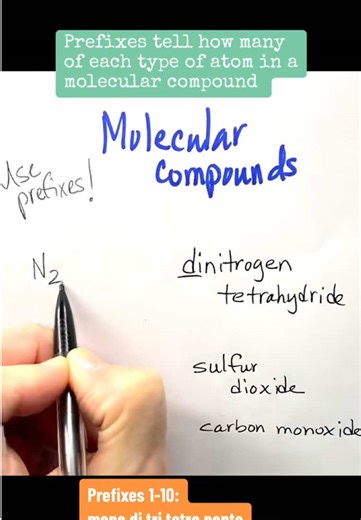 Prefixes tell how many
of each type of atom in a
molecular compound
Molecular
compounds
Use
prefixes!
N2
dinitrogen
tetrahydride
sulfur
dioxide
carbon monoxide
Prefixes 1-10:
mono di tri tetra penta